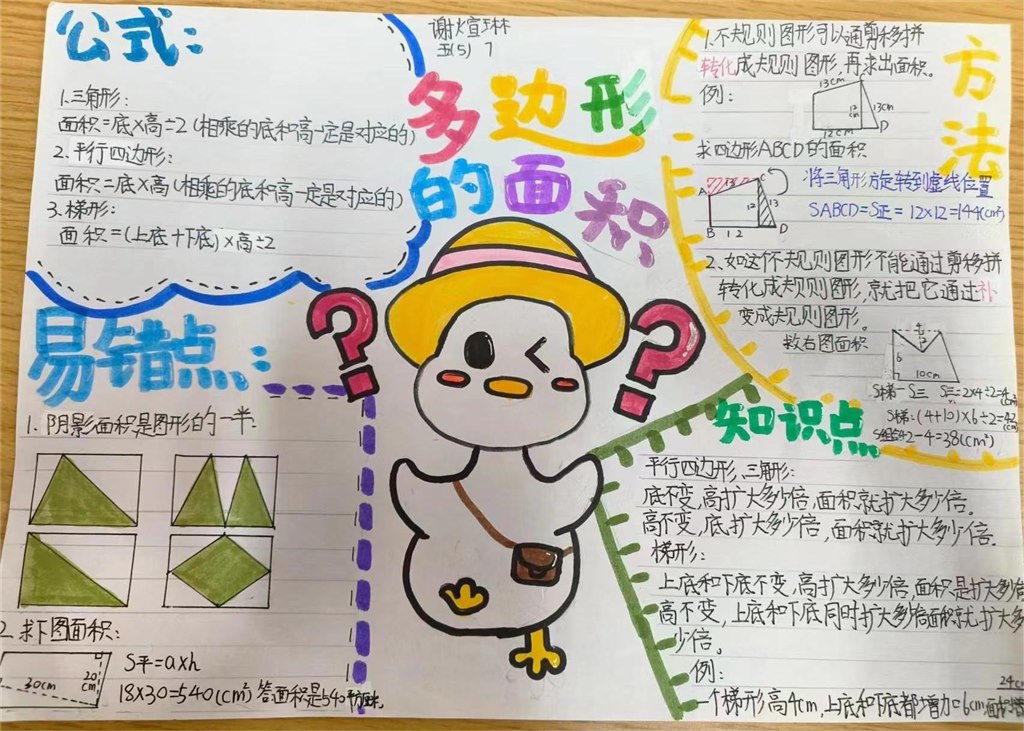 公式:
谢煊琳
五(5) 7
多边形
的面积
1.三角形:
面积=底×高÷2(相乘的底和高一定是对应的)
2.平行四边形:
面积=底×高(相乘的底和高一定是对应的)
3.梯形:
面积=(上底+下底)×高÷2
方法
1.不规则图形可以通剪移拼
转化成规则图形,再求出面积。
例:
13cm
13cm
12cm
12cm
D
求四边形ABCD的面积
将三角形旋转到虚线位置
SABCD=S正=12×12=144(cm²)
A
C
13
12
13
B
12
D
2.如这个不规则图形不能通过剪移拼
转化成规则图形,就把它通过补
变成规则图形。
救右图面积
6
10cm
S梯-S三 S三=2×4÷2=4(cm)
S梯:(4+10)×6÷2=42(cm)
42-4=38(cm²)
易错点:
1.阴影面积是图形的一半:
2.求下图面积:
30cm
20
cm
S平=a×h
18×30=540(cm²) 答面积是540平方厘米。
知识点
平行四边形,三角形:
底不变,高扩大多少倍,面积就扩大多少倍。
高不变,底扩大多少倍,面积就扩大多少倍.
梯形:
上底和下底不变,高扩大多少倍,面积是扩大多少倍
高不变,上底和下底同时扩大多少倍面积就扩大多
少倍。
例:
24cm
一个梯形高4cm,上底和下底都增加6cm,面积增